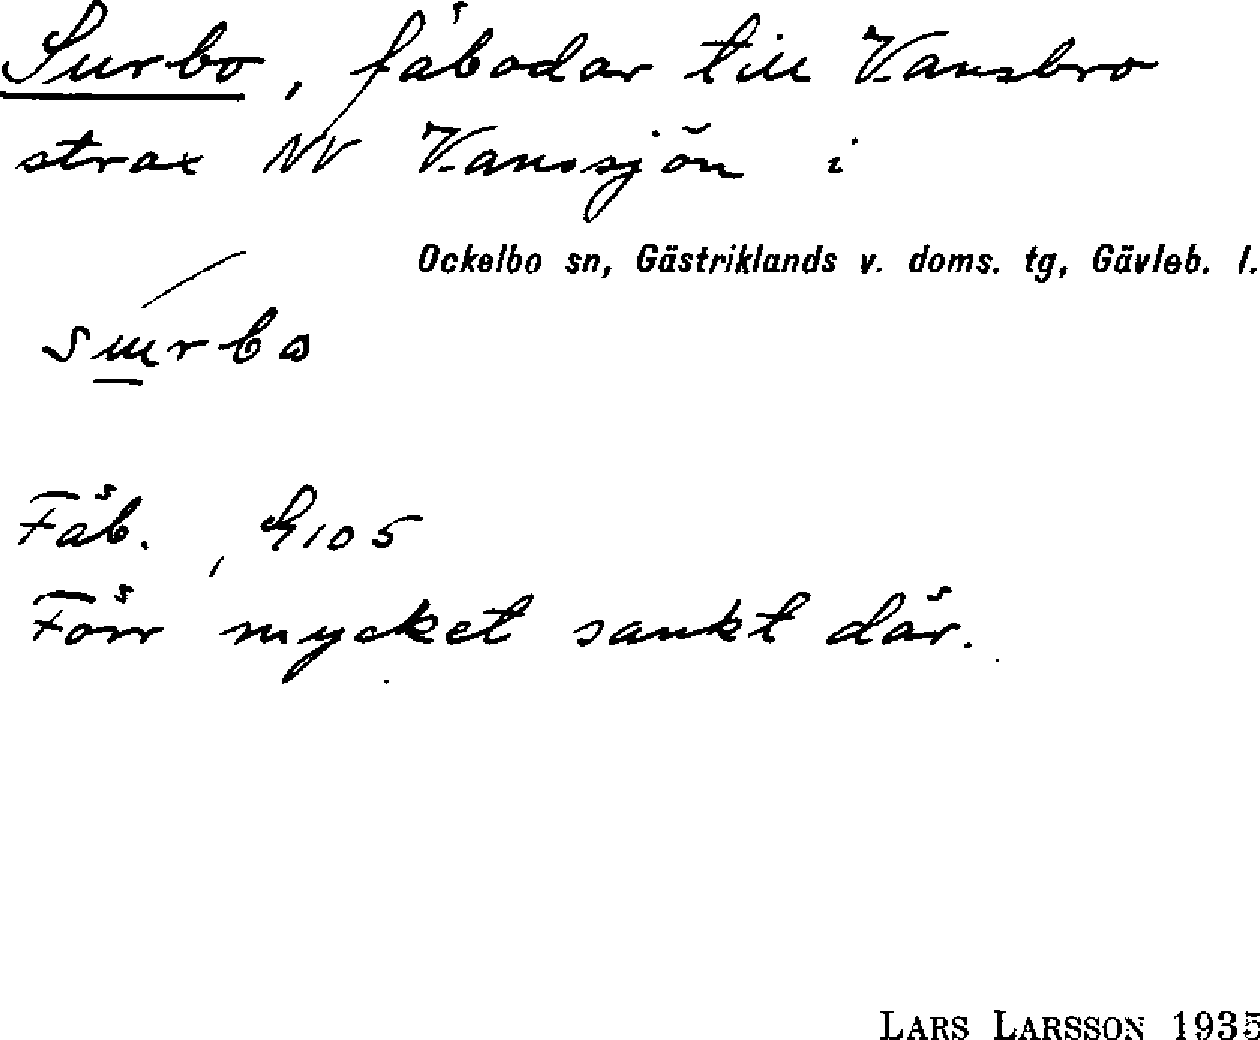 Surbo, fäbodar till Vansbro
strax NV Vanssjön i
Ockelbo sn, Gästriklands v. doms. tg, Gävleb. l.
Fäb.
Förr mycket sankt där.
LARS LARSSON 1935